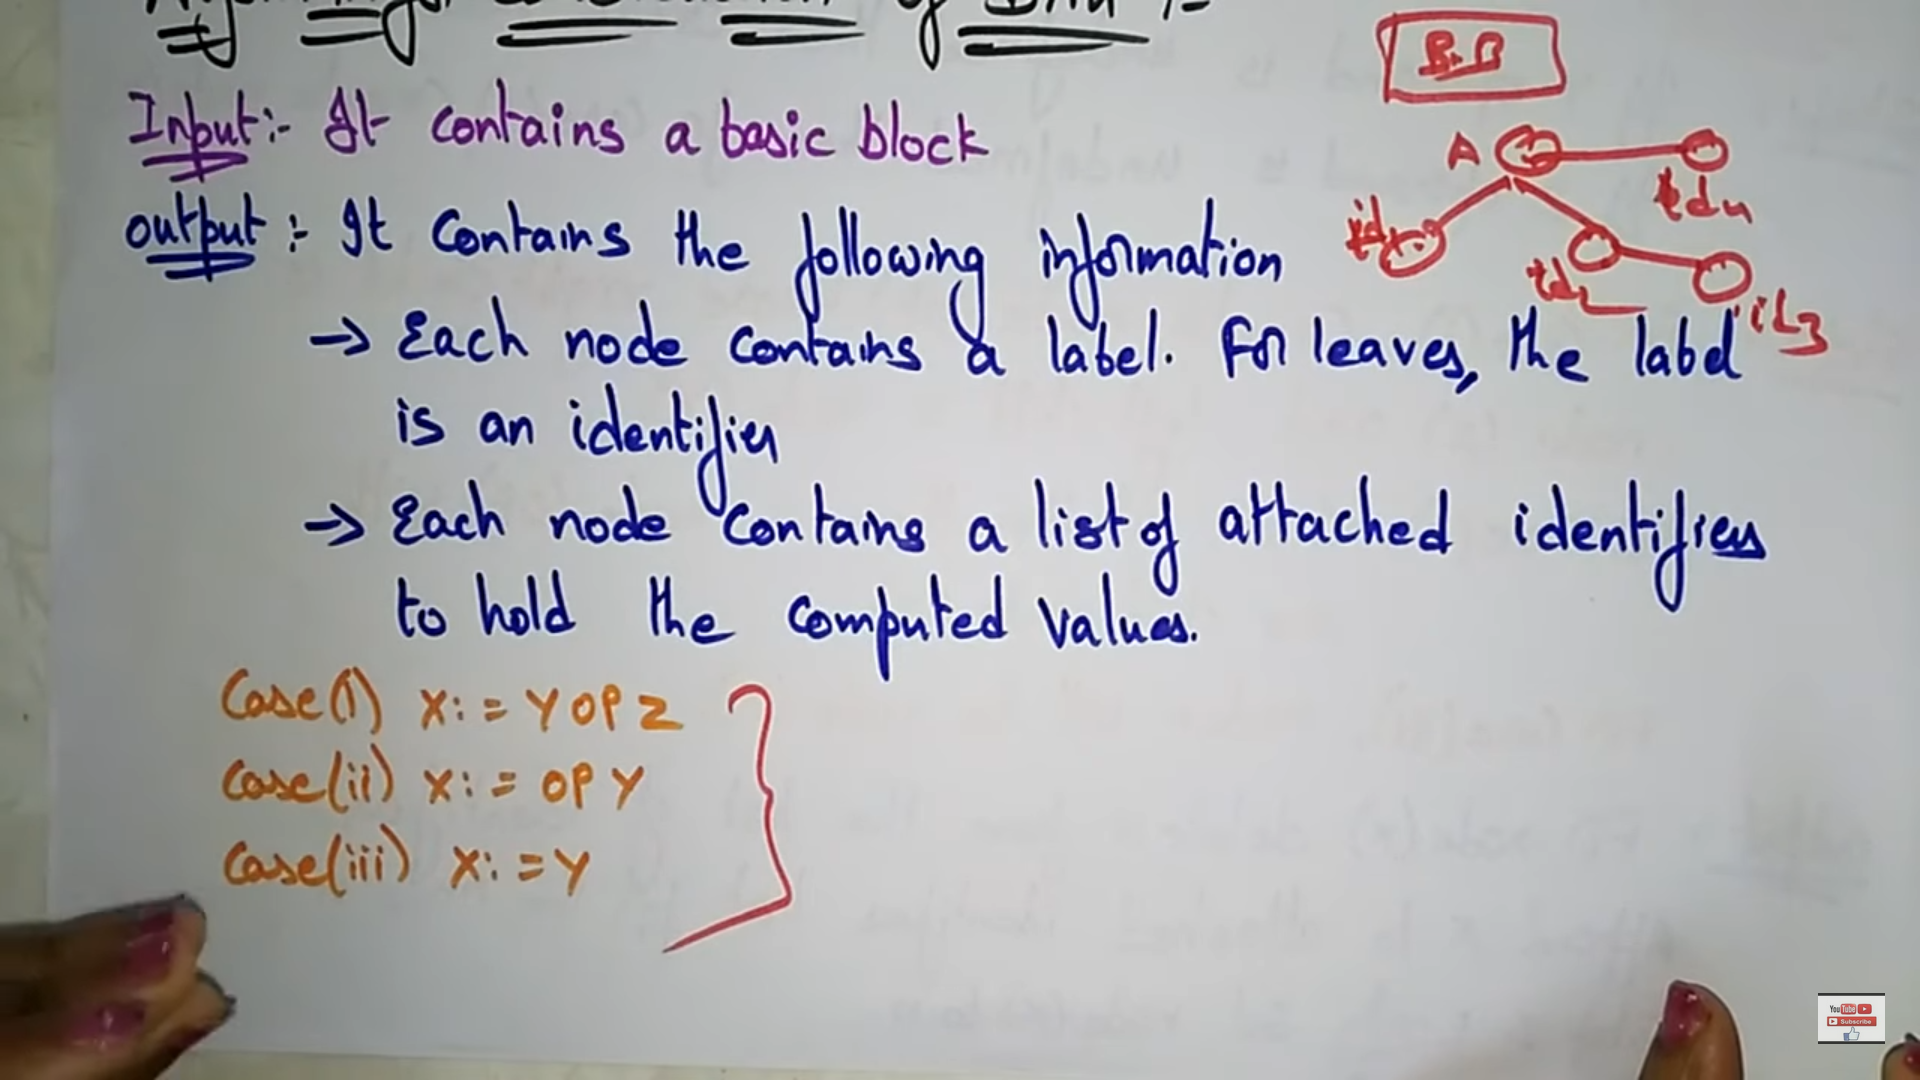 of
B.B
Input:- It contains a basic block
A
output:- It contains the following information
id3
→ Each node contains a label. For leaves, the label
is an identifier
→ Each node contains a list of attached identifiers
to hold the computed values.
Case(i) X:= Y OP Z
Case(ii) X:= OP Y
Case(iii) X:= Y
YouTube
Subscribe